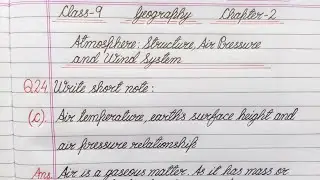 Class-9 Geography Chapter-2
Atmosphere: Structure, Air Pressure
and Wind System
Q24. Write short note:
(c). Air temperature, earth's surface height and
air pressure relationship.
Ans. Air is a gaseous matter. As it has mass or